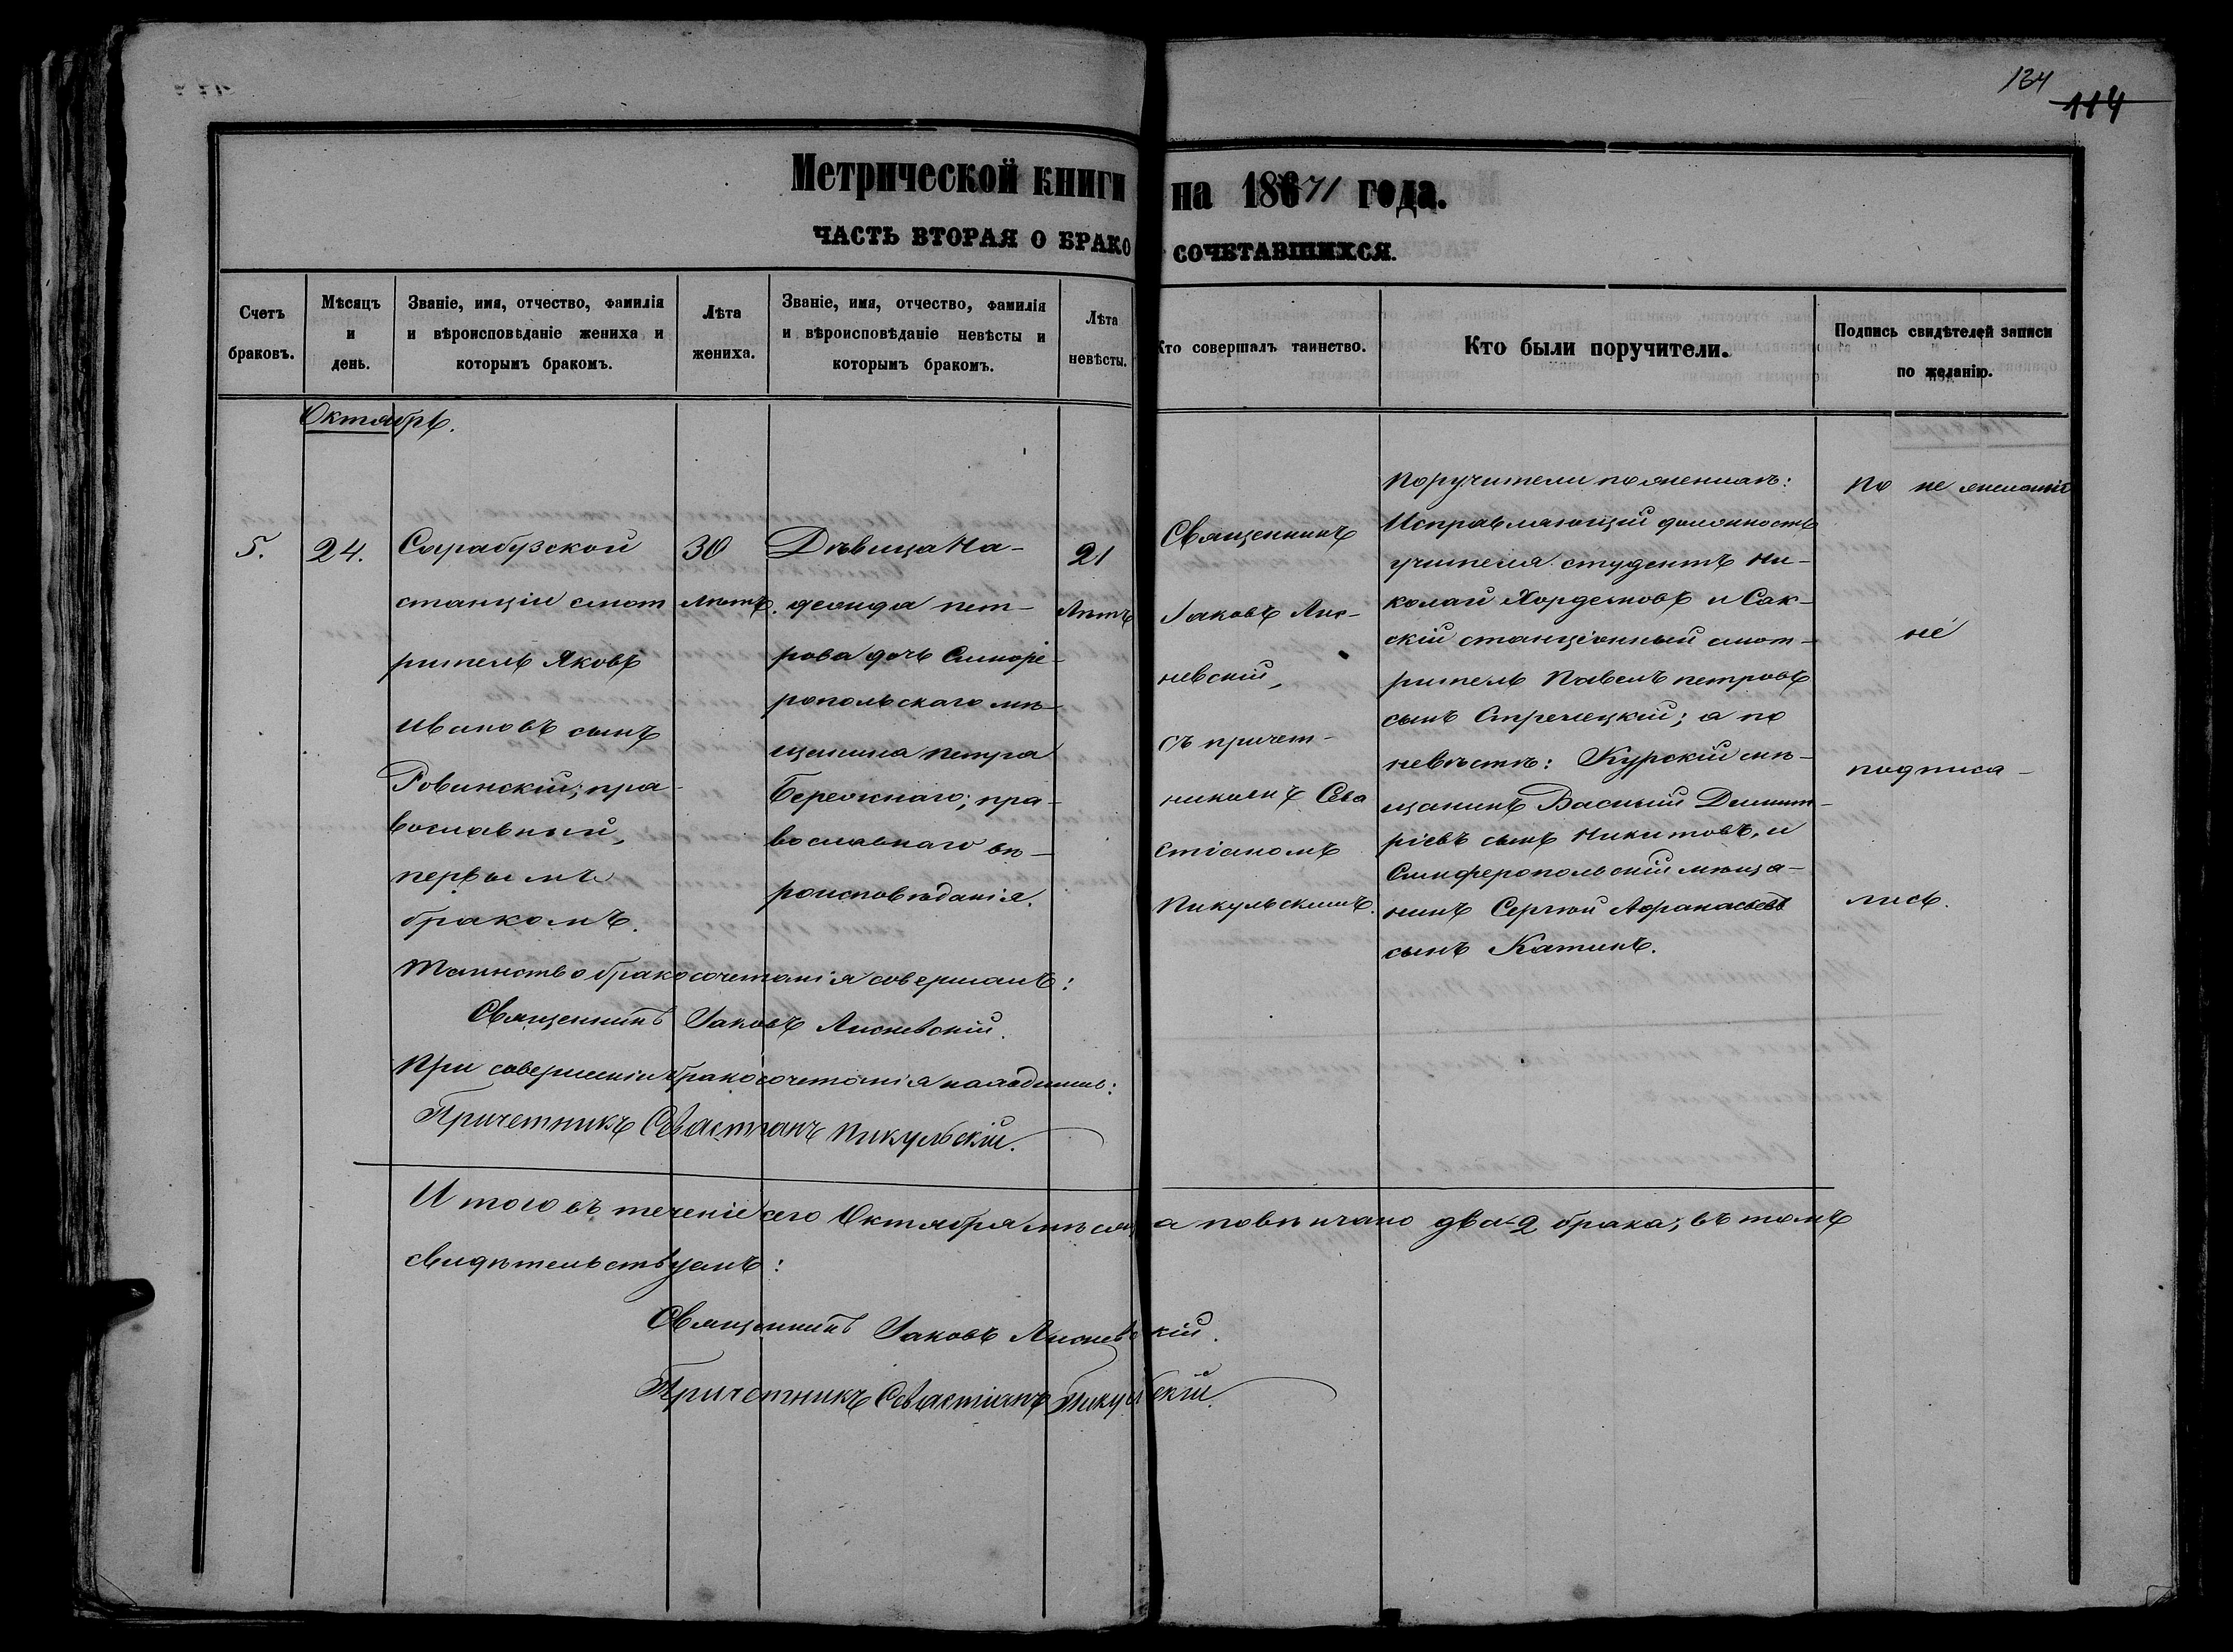 134
114
Метрической книги на 18671 года.
ЧАСТЬ ВТОРАЯ О БРАКОСОЧЕТАВШИХСЯ.
Счетъ
браковъ.
Мѣсяцъ
и
день.
Званіе, имя, отчество, фамилія
и вѣроисповѣданіе жениха и
которымъ бракомъ.
Лѣта
жениха.
Званіе, имя, отчество, фамилія
и вѣроисповѣданіе невѣсты и
которымъ бракомъ.
Лѣта
невѣсты.
Кто совершалъ таинство.
Кто были поручители.
Подпись свидѣтелей записи
по желанію.
Октябрь.
5.
24.
Сарабузской
станціи смот
ритель Яковъ
Ивановъ сынъ
Ровинскій; пра-
вославный,
первымъ
бракомъ.
30
лѣтъ.
Дѣвица На-
дежда пет-
рова дочь Симфе-
ропольскаго мѣ-
щанина Петра
Бережнаго; пра-
вославнаго вѣ-
роисповѣданія.
21
лѣтъ
Священникъ
Іаковъ Лис-
невскій,
съ причет-
никомъ Сева
стіаномъ
Пикульскимъ.
Поручители по женихѣ:
Исправляющій должность
учителя студентъ Ни-
колай Хордемовъ и Сак-
скій станціонный смот-
ритель Павелъ петровъ
сынъ Стрелецкій; а по
невѣстѣ: Курскій мѣ-
щанинъ Василій Димит-
ріевъ сынъ Никитовъ, и
Симферопольскій мѣща-
нинъ Сергѣй Афанасьевъ
сынъ Катинъ.
По не желанію
не
подписа-
лись.
Таинство бракосочетанія совершалъ:
Священникъ Іаковъ Лисневскій.
При совершеніи бракосочетанія находился:
Причетникъ Севастіанъ Пикульскій.
И того въ теченіе сего Октября мѣсяца повѣнчано два 2 брака; въ томъ
свидѣтельствуемъ:
Священникъ Іаковъ Лисневскій.
Причетникъ Севастіанъ Пикульскій.